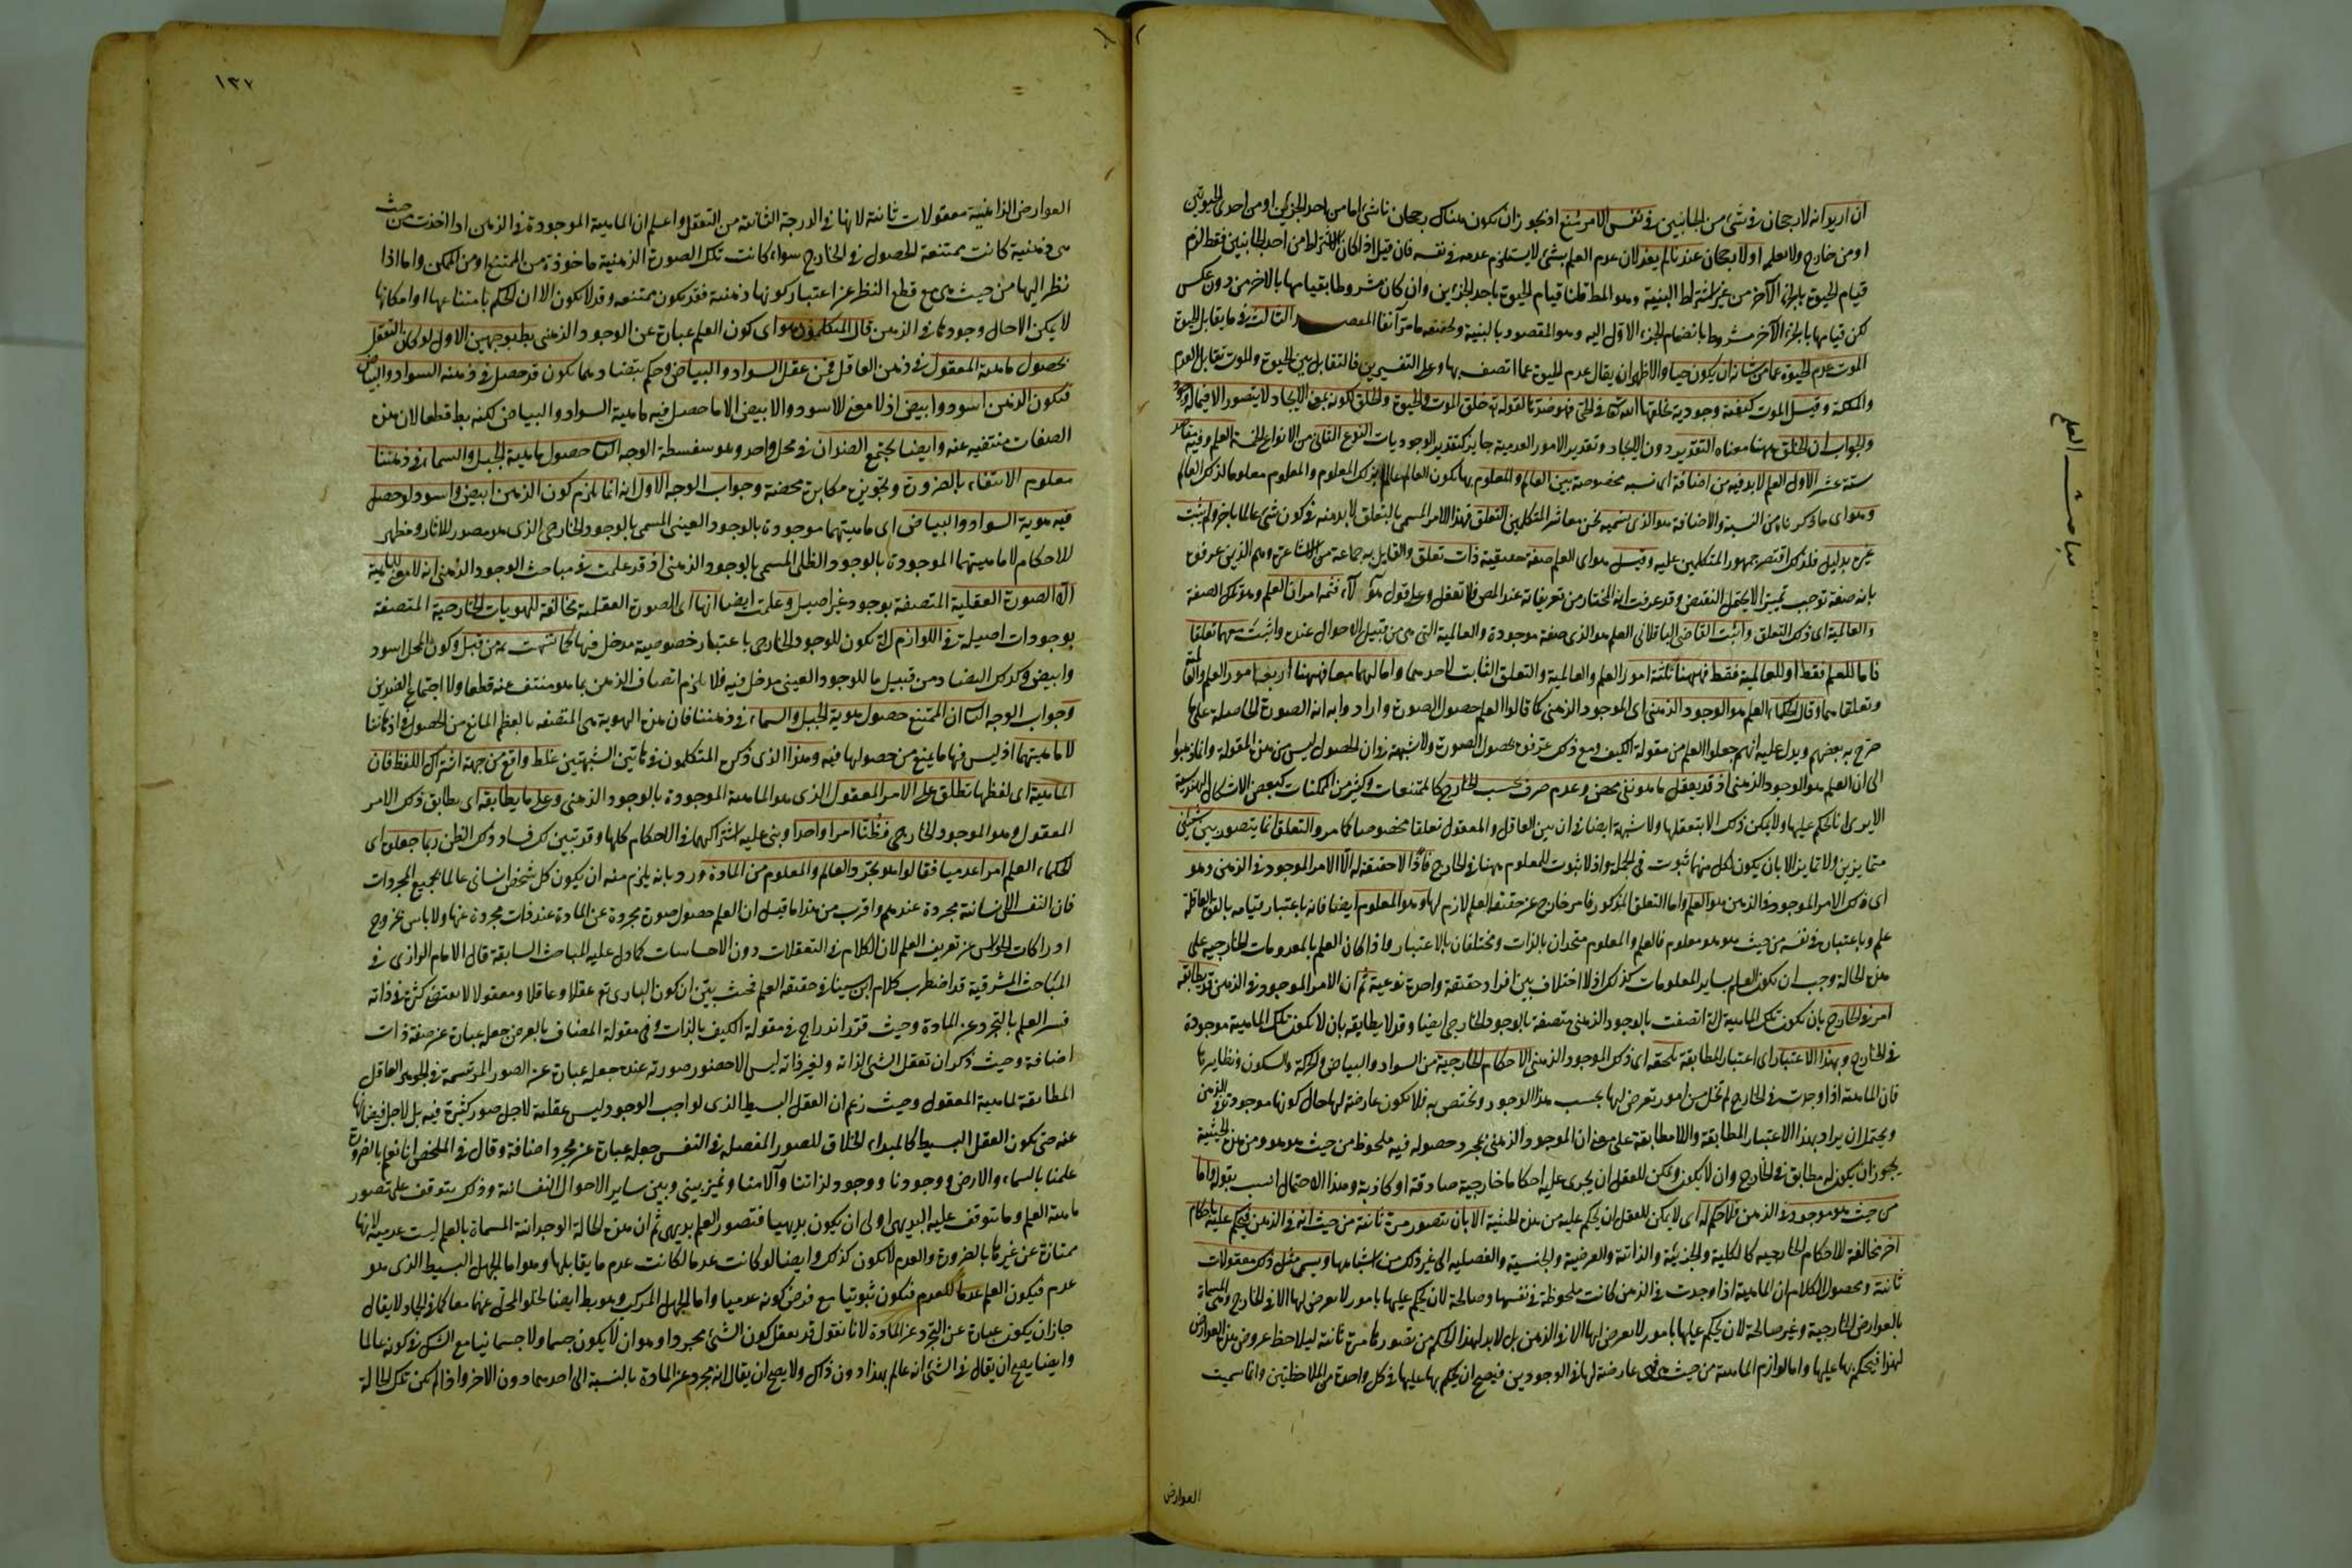 ان اريد انه لا رجحان فى شئ من الجانبين فى نفس الامر منع اذ يجوز ان يكون هناك رجحان ناشئ اما من احد الجزئين او من احدى الحيوتين
او من خارج ولا نعلمه او لا رجحان عندنا لم يفد لان عدم العلم بشئ لا يستلزم عدمه فى نفسه فان قيل اذا كان الاشتراط من احد الجانبين فقط لزم
قيام الحيوة بالجزء الآخر من غير اشتراط البنية وهو المط قلنا قيام الحيوة باحد الجزءين وان كان مشروطا بقيامها بالاخر من دون عكس
لكن قيامها بالجزء الآخر مشروط بانضمام الجزء الاول اليه وهو المقصود بالبنية ما مر آنفا المقصد الثالث فيما يقابل الحيوة
الموت عدم الحيوة عما من شانه ان يكون حيا والاظهر ان يقال عدم الحيوة عما اتصف بها وعلى التفسيرين فالتقابل بين الحيوة والموت تقابل العدم
والملكة وقيل الموت كيفية وجودية يخلقها الله تعالى فى الحى فهو ضدها لقوله تع خلق الموت والحيوة والخلق لكونه بمعنى الايجاد لا يتصور الا فيما له وجود
والجواب ان الخلق ههنا معناه التقدير دون الايجاد وتقدير الامور العدمية جايز كتقدير الوجوديات النوع الثانى من الانواع الخمسة العلم وفيه مقاصد
ستة عشر الاول العلم لا بد فيه من اضافة اى نسبة مخصوصة بين العالم والمعلوم بها يكون العالم عالما بذلك المعلوم والمعلوم معلوما لذلك العالم
وهو اى ما ذكرنا من النسبة والاضافة هو الذى نسميه نحن معاشر المتكلمين التعلق فهذا الامر المسمى بالتعلق لا بد منه فى كون شئ عالما باخر ولم يثبت
غيره بدليل فلذلك اقتصر جمهور المتكلمين عليه وقيل هو اى العلم صفة حقيقية ذات تعلق والقايل به جماعة من الاشاعرة وهم الذين عرفوه
بانه صفة توجب تمييزا لا يحتمل النقيض وقد عرفت انه المختار من تعريفاته عند المص فلا تغفل وعلى قول هؤلاء فثمه امران العلم وهو تلك الصفة
والعالمية اى ذلك التعلق واثبت القاضى الباقلانى العلم هو الذى صفة موجودة والعالمية التى هى من قبيل الاحوال عنده واثبت معهما تعلقا
فاما للعلم فقط او للعالمية فقط فههنا ثلثة امور العلم والعالمية والتعلق الثابت لاحدهما واما لهما معا فههنا اربعة امور العلم والعالمية
وتعلقاهما وقال الحكماء العلم هو الوجود الذهنى اى الموجود الذهنى كما قالوا العلم حصول الصورة وارادوا به انه الصورة الحاصلة على ما
صرح به بعضهم ويدل عليه انهم جعلوا العلم من مقولة الكيف ومع ذلك عرفوه بحصول الصورة ولا شبهة فى ان الحصول ليس من هذه المقولة وانما ذهبوا
الى ان العلم هو الوجود الذهنى اذ قد يعقل ما هو نفى محض وعدم صرف بحسب الخارج كالممتنعات وكثير من الممكنات كبعض الاشكال الهندسية
الا يرى انا نحكم عليها ولا يمكن ذلك الا بتعقلها ولا شبهة ايضا فى ان بين العاقل والمعقول تعلقا مخصوصا كما مر والتعلق انما يتصور بين شيئين
متمايزين ولا تمايز الا بان يكون لكل منهما ثبوت فى الجملة واذ لا ثبوت للمعلوم ههنا فى الخارج فاذا لا حقيقة له الا الامر الموجود فى الذهن وهو
اى ذلك الامر الموجود فى الذهن هو العلم واما التعلق المذكور فامر خارج عن حقيقة العلم لازم لها وهو المعلوم ايضا فانه باعتبار قيامه بالقوة العاقلة
علم وباعتباره فى نفسه من حيث هو هو معلوم فالعلم والمعلوم متحدان بالذات ومختلفان بالاعتبار واذا كان العلم بالمعدومات الخارجيه على
هذه الحالة وجب ان يكون العلم بساير المعلومات كذلك اذ لا اختلاف بين افراد حقيقة واحدة نوعية ثم ان الامر الموجود فى الذهن قد يطابقه
امر فى الخارج بان يكون تلك الماهية التى اتصفت بالوجود الذهنى متصفة بالوجود الخارجى ايضا وقد لا يطابقه بان لا يكون تلك الماهية موجودة
فى الخارج وبهذا الاعتبار اى اعتبار المطابقة يلحقه اى ذلك الموجود الذهنى الاحكام الخارجية من السواد والبياض والحركة والسكون ونظايرها
فان الماهية اذا وجدت فى الخارج لم تخل من امور تعرض لها بحسب هذا الوجود وتختص به فلا يكون عارضة لها حال كونها موجودة فى الذهن
ويحتمل ان يراد بهذا الاعتبار المطابقة واللامطابقة على معنى ان الموجود الذهنى بمجرد حصوله فيه ملحوظ من حيث هو هو ومن هذه الحيثية
يجوز ان يكون له مطابق فى الخارج وان لا يكون ويمكن للعقل ان يجرى عليه احكاما خارجية صادقة او كاذبة وهذا الاحتمال انسب بقوله واما
من حيث هو موجود فى الذهن فلا حكم له اى لا يمكن للعقل ان يحكم عليه من هذه الحيثية الا بان يتصور مرة ثانية من حيث انه فى الذهن فيحكم عليه باحكام
اخر مخالفة للاحكام الخارجيه كالكلية والجزئية والذاتية والعرضية والجنسية والفصلية الى غير ذلك من اشباهها ويسمى مثل ذلك معقولات
ثانية ومحصول الكلام ان الماهية اذا وجدت فى الذهن كانت ملحوظة فى نفسها وصالحة لان يحكم عليها بامور لا يعرض لها الا فى الخارج وهى المسماة
بالعوارض الخارجية وغير صالحة لان يحكم عليها بامور لا يعرض لها الا فى الذهن بل لا بد لهذا الحكم من تصورها مرة ثانية ليلاحظ عروض هذه العوارض
لها فيحكم بها عليها واما لوازم الماهية من حيث هى فهى عارضة لها فى الوجودين فيصح ان يحكم بها عليها فى كل واحدة من الملاحظتين وانما سميت
العوارض
مباحث العلم
١٣٧
العوارض الذهنية معقولات ثانية لانها فى الدرجة الثانية من التعقل واعلم ان الماهية الموجودة فى الذهن اذا اخذت من حيث
هى ذهنية كانت ممتنعة الحصول فى الخارج سواء كانت تلك الصورة الذهنية ماخوذة من الممتنع او من الممكن واما اذا
نظر اليها من حيث هى مع قطع النظر عن اعتبار كونها ذهنية فقد يكون ممتنعه وقد لا يكون الا ان الحكم بامتناعها او امكانها
لا يمكن الا حال وجودها فى الذهن قال المتكلمون هو اى كون العلم عبارة عن الوجود الذهنى بط بوجهين الاول لو كان التعقل
بحصول ماهية المعقول فى ذهن العاقل فمن عقل السواد والبياض وحكم بتضادهما يكون قد حصل فى ذهنه السواد والبياض
فيكون الذهن اسود وابيض اذ لا معنى للاسود والابيض الا ما حصل فيه ماهية السواد والبياض لكنه بط قطعا لان هذه
الصفات منتفيه عنه وايضا يجتمع الضدان فى محل واحد وهو سفسطة الوجه الثانى حصول ماهية الجبل والسماء فى ذهننا
معلوم الانتفاء بالضرورة وتجويزه مكابرة محضة وجواب الوجه الاول انه انما يلزم كون الذهن ابيض واسود لو حصل
فيه هوية السواد والبياض اى ماهيتهما موجودة بالوجود العينى المسمى بالوجود الخارجى الذى هو مصدر للاثار ومظهر
للاحكام لا ماهيتهما الموجودة بالوجود الظلى المسمى بالوجود الذهنى اذ قد علمت فى مباحث الوجود الذهنى انه لا معنى للماهية
الا الصورة العقلية المتصفة بوجود غير اصيل وعلمت ايضا انها اى الصورة العقلية مخالفة للهويات الخارجية المتصفة
بوجودات اصيلة فى اللوازم التى يكون للوجود الخارجى باعتبار خصوصية مدخل فيها كما نبهت به من قبل وكون المحل اسود
وابيض وكذلك التضاد من قبيل ما للوجود العينى مدخل فيه فلا يلزم اتصاف الذهن بما هو منتف عنه قطعا ولا اجتماع الضدين
وجواب الوجه الثانى ان الممتنع حصول هوية الجبل والسماء فى ذهننا فان هذه الهوية هى المتصفة بالعظم المانع من الحصول فى اذهاننا
لا ماهيتهما اذ ليس فيها ما يمنع من حصولها فيه وهذا الذى ذكره المتكلمون فى هاتين الشبهتين غلط واقع من جهة اشتراك اللفظ فان
الماهية اى لفظها تطلق على الامر المعقول الذى هو الماهية الموجودة بالوجود الذهنى وعلى ما يطابقه اى يطابق ذلك الامر
المعقول وهو الموجود الخارجى فظنا امرا واحدا وبنى عليه اشتراكهما فى الاحكام كلها وقد تبين لك فساد ذلك الظن ربما جعلوه اى
الحكماء العلم امرا عدميا فقالوا هو تجرد العالم والمعلوم من المادة ورد بانه يلزم منه ان يكون كل شخص انسانى عالما بجميع المجردات
فان النفس الانسانية مجردة عندهم واقرب من هذا ما قيل ان العلم حصول صورة مجردة عن المادة عند ذات مجردة عنها ولا باس بخروج
ادراكات الحواس عن تعريف العلم لان الكلام فى التعقلات دون الاحساسات كما دل عليه المباحث السابقة قال الامام الرازى فى
المباحث المشرقية قد اضطرب كلام ابن سينا فى حقيقة العلم فحيث بين ان كون البارى تع عقلا وعاقلا ومعقولا لا يقتضى كثرة فى ذاته
فسر العلم بالتجرد عن المادة وحيث قرر اندراجه فى مقولة الكيف بالذات وفى مقولة المضاف بالعرض جعله عبارة عن صفة ذات
اضافة وحيث ذكر ان تعقل الشئ لذاته ولغير ذاته ليس الا حضور صورته عنده جعله عبارة عن الصور المرتسمة فى الجوهر العاقل
المطابقة لماهية المعقول وحيث زعم ان العقل البسيط الذى لواجب الوجود ليس عقليته لاجل صور كثيرة فيه بل لاجل فيضانها
عنه حتى يكون العقل البسيط كالمبداء الخلاق للصور المفصلة فى النفس جعله عبارة عن مجرد اضافة وقال فى الملخص انا نعلم بالضرورة
علمنا بالسماء والارض ووجودنا ووجود لذاتنا وآلامنا ونميز بينى وبين ساير الاحوال النفسانية وذلك يتوقف على تصور
ماهية العلم وما يتوقف عليه البديهى اولى ان يكون بديهيا فتصور العلم بديهى ثم ان هذه الحالة الوجدانية المسماة بالعلم ليست عدمية لانها
ممتازة عن غيرها بالضرورة والعدم لا يكون كذلك وايضا لو كانت عدما لكانت عدم ما يقابلها وهو اما الجهل البسيط الذى هو
عدم فيكون العلم عدما للعدم فيكون ثبوتيا مع فرض كونه عدميا واما الجهل المركب وهو بط ايضا لخلو المحل عنهما معا كما فى الجماد لا يقال
جاز ان يكون عبارة عن التجرد عن المادة لانا نقول قد يعقل كون الشئ مجردا وهو ان لا يكون جسما ولا جسمانيا مع الشك فى كونه عالما
وايضا يصح ان يقال فى الشئ انه عالم بهذا دون ذاك ولا يصح ان يقال انه مجرد عن المادة بالنسبة الى احدهما دون الاخر واذا لم يكن تلك الحالة